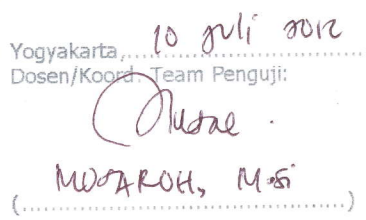 Yogyakarta, 10 Juli 2012
Dosen/Koord. Team Penguji:
MUSAROH, M.Si
(........................................)